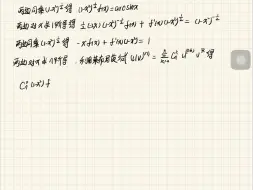 两边同乘(1-x²)^½得 (1-x²)^½f(x)=arcsinx
两边对x求1阶导得 ½(-2x)(1-x²)^-½f(x)+f'(x)(1-x²)^½=(1-x²)^-½
两边同乘(1-x²)^½得 -xf(x)+f'(x)(1-x²)=1
两边对x求n阶导, (uv)^(n)=Σ C_n^k u^(n-k) v^(k) 得
C_n^0(1-x²)f